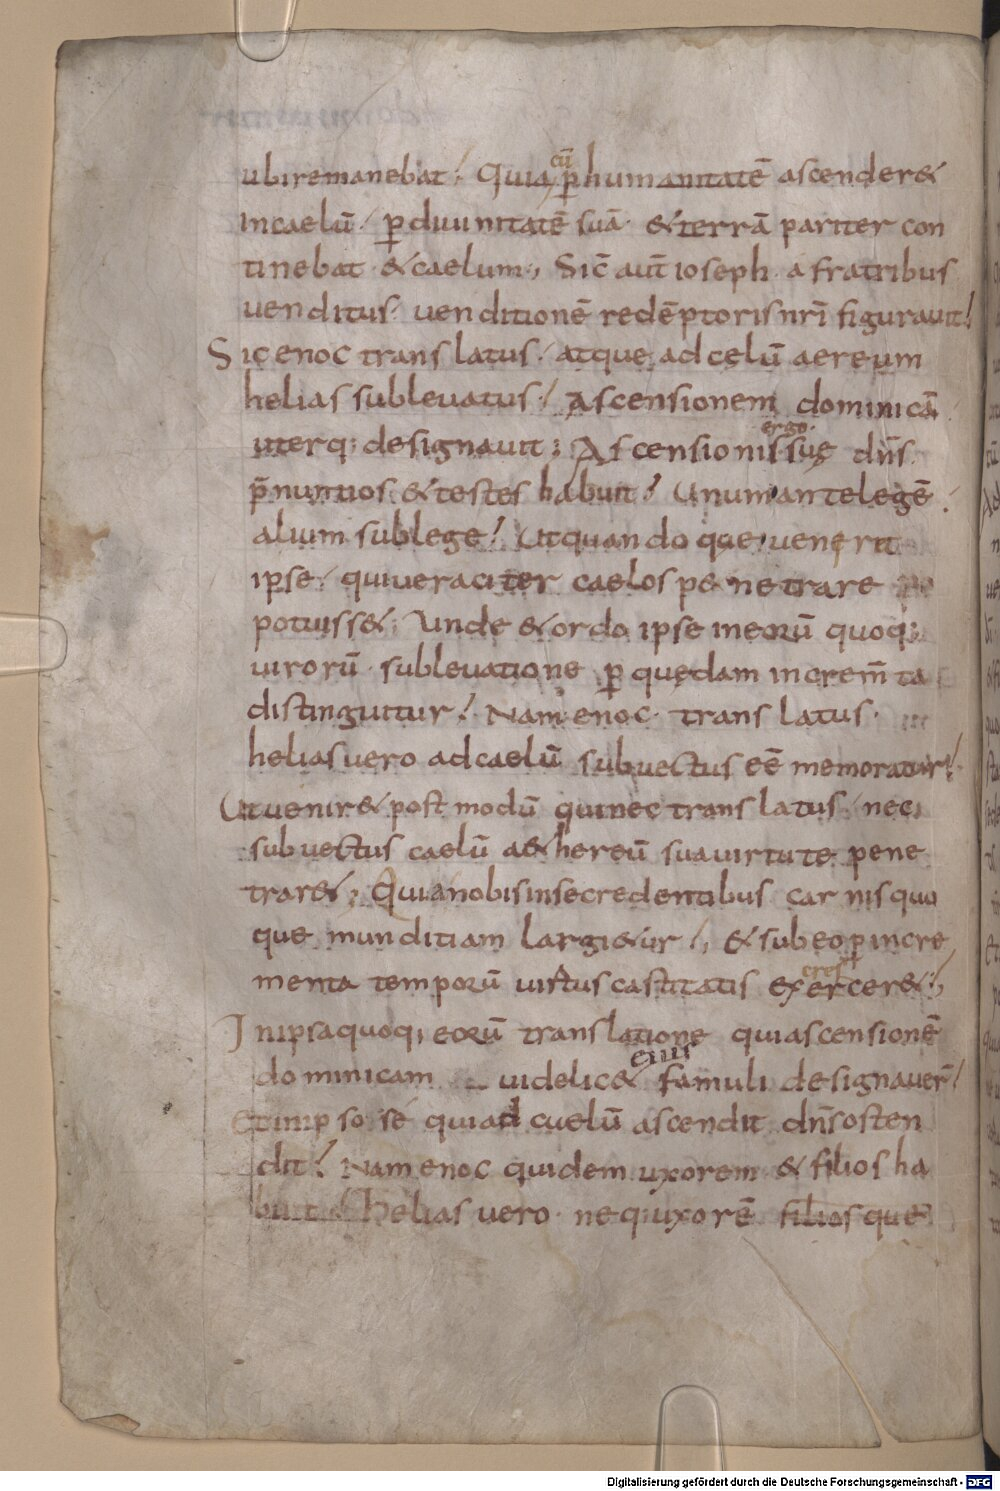 ubi remanebat. Quia cū ꝑ humanitatē ascender&
in caelū. ꝑ diuinitatē suā. & terrā pariter con
tinebat & caelum; Sic̄ aut̄ ioseph a fratribus
uenditus. uenditionē redēptoris nr̄i figurauit!
Sic enoc translatus. atque ad celū aereum
helias subleuatus. Ascensionem dominicā
uterq; designauit; Ascensionis ergo suę dn̄s
p̄nuntios & testes habuit. Unum ante legē.
alium sub lege. Ut quandoque uenerit
ipse. qui ueraciter caelos penetrare
potuiss&; Unde & ordo ipse in eorū quoq;
uirorū subleuatione ꝑ quędam increm̄ta
distinguitur. Nam enoc translatus.
helias uero ad caelū subuectus eē memoratur.
Ut uenir& postmodū qui nec translatus. nec
subuectus caelū a&hereū sua uirtute pene
trar&; Quia nobis in se credentibus carnis quo
que munditiam largi&ur; & sub eo ꝑ incre
menta temporū uirtus castitatis excrescer&;
In ipsa quoq; eorū translatione qui ascensionē
dominicam uidelic& eius famuli designauer̄.
Et in ipso sé qui ad caelū ascendit dn̄s osten
dit. Nam enoc quidem uxorem & filios ha
buit. Helias uero neq; uxorē filiosque
Digitalisierung gefördert durch die Deutsche Forschungsgemeinschaft - DFG